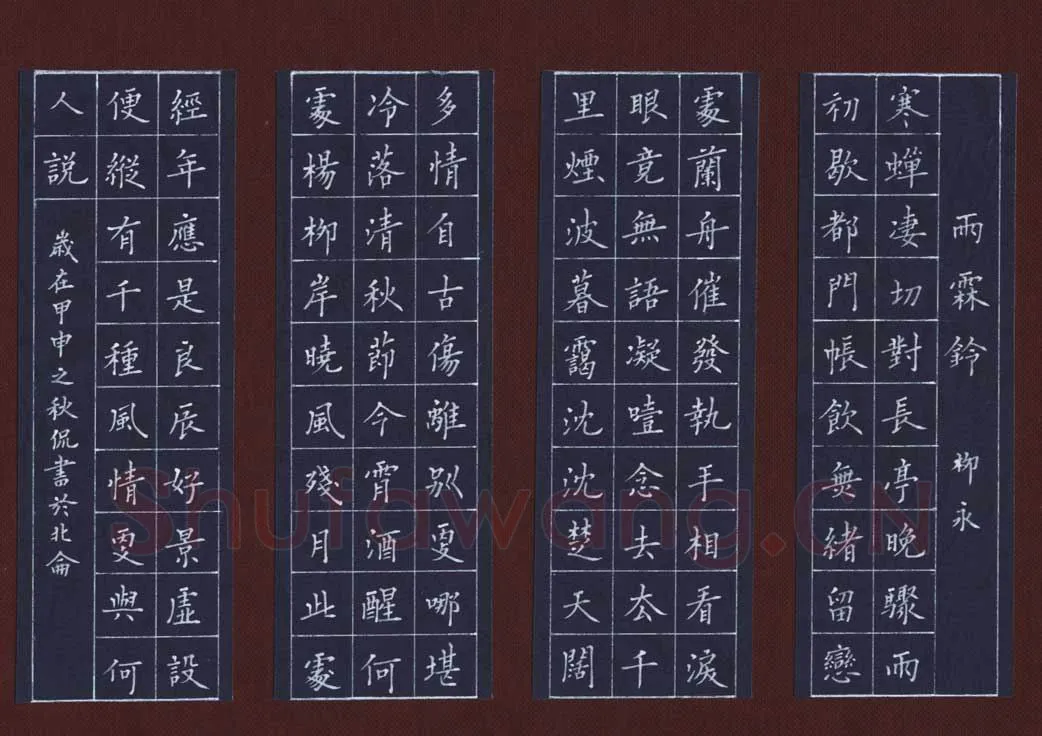 雨霖鈴 柳永
寒蟬凄切對長亭晚驟雨
初歇都門帳飲無緒留戀
處蘭舟催發執手相看淚
眼竟無語凝噎念去去千
里煙波暮靄沈沈楚天闊
多情自古傷離别更哪堪
冷落清秋節今宵酒醒何
處楊柳岸曉風殘月此處
經年應是良辰好景虛設
便縱有千種風情更與何
人説
歲在甲申之秋侃書於北侖
Shufawang.CN